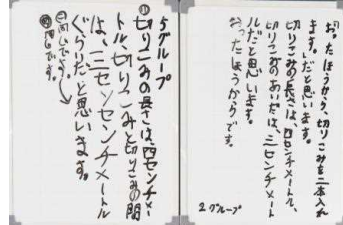 おったほうから、切りこみを二本入れ
ます。」だと思います。
切りこみの長さは、四センチメートル、
切りこみのあいだは、三センチメート
ルだと思います。
おったほうからです。
2グループ
5グループ
①切りこみの長さは、四センチメー
トル、切りこみと切りこみの間
は、三センセンチメートル
ぐらいだと思います。
同じです。
同じです。